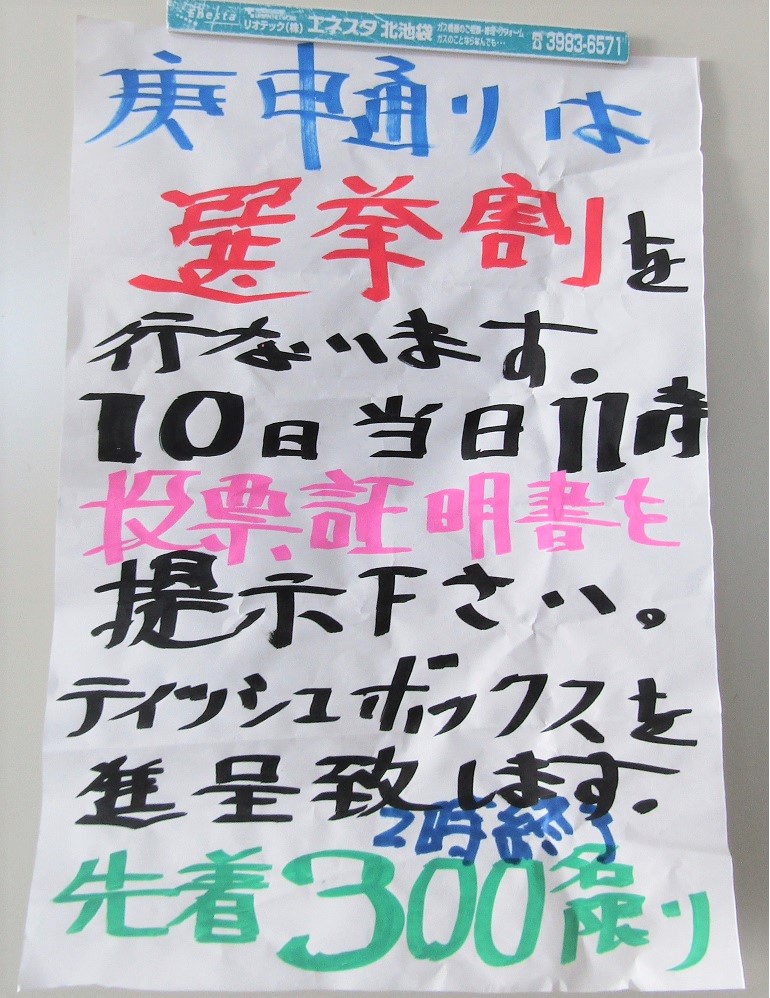 Enesta
リオテック(株) エネスタ 北池袋 ガス機器のご相談・修理・リフォーム ☎3983-6571
ガスのことならなんでも…
庚申通りは
選挙割を
行ないます.
10日当日11時
投票証明書を
提示下さい。
ティッシュボックスを
進呈致します.
2時終了
先着300名限り